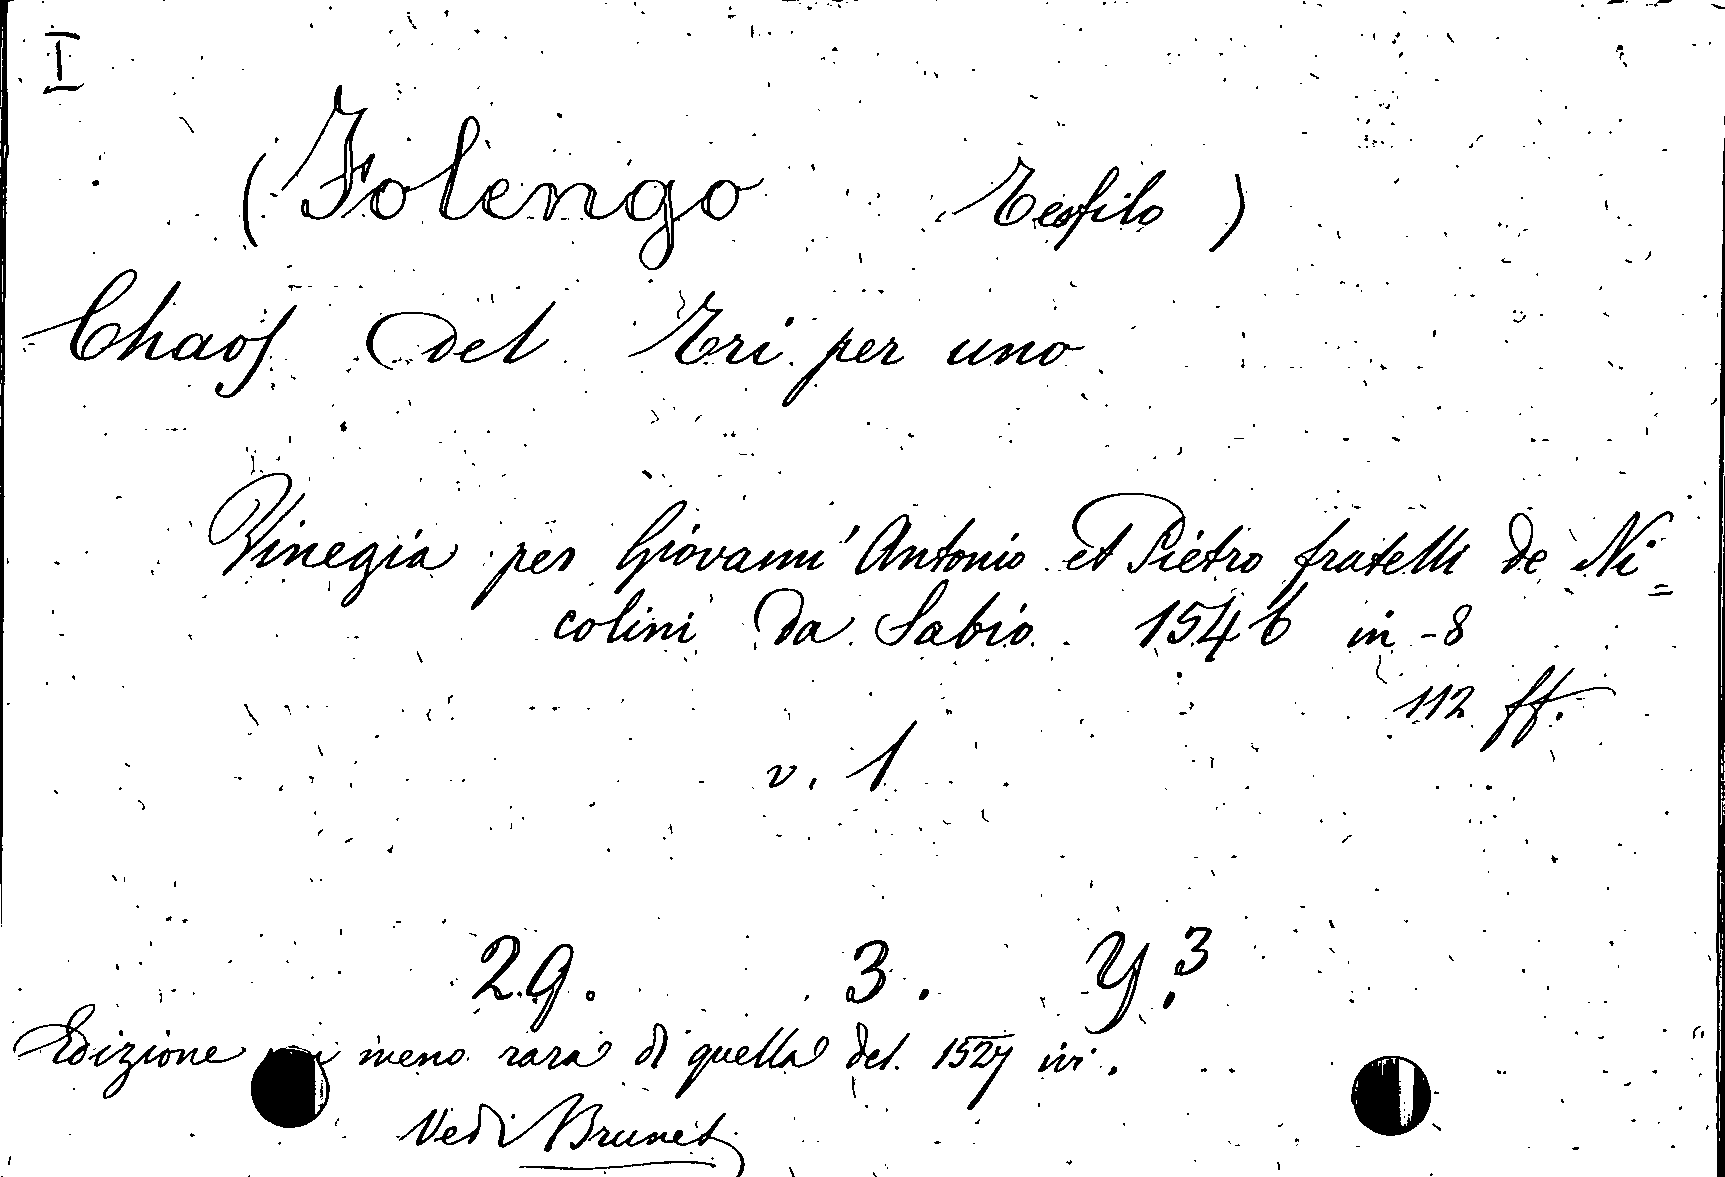 I
(Folengo Teofilo)
Chaos del Tri per uno
Vinegia per Giovann' Antonio et Pietro fratelli de Ni=
colini da Sabio. 1546 in-8
112 ff.
v. 1
29. 3. Y.3
Edizione meno rara di quella del 1527 ivi.
Vedi Brunet